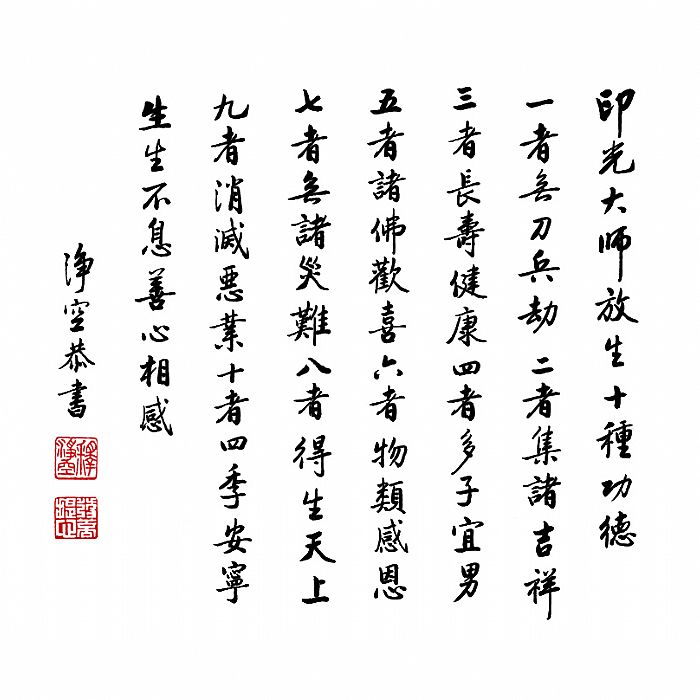 印光大师放生十種功德
一者無刀兵劫二者集諸吉祥
三者長壽健康四者多子宜男
五者諸佛歡喜六者物類感恩
七者無諸災難八者得生天上
九者消滅惡業十者四季安寧
生生不息善心相感
淨空恭書